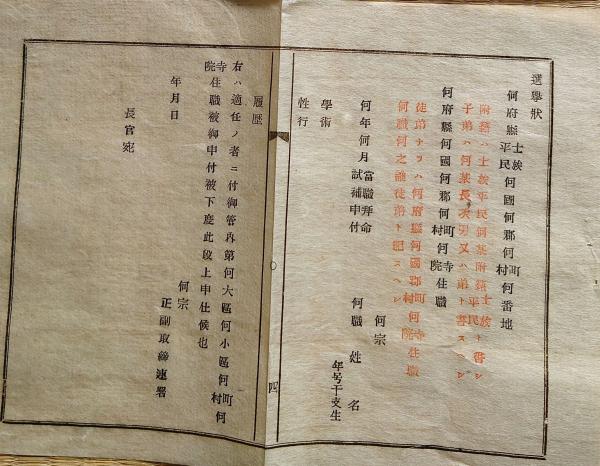 選擧狀
何府縣士族平民何國何郡何町村何番地
附籍ハ士族平民何某附籍士族平民ト書シ
子弟ハ何某長次男又ハ弟ト書スヘシ
何府縣何國何郡何町村何寺院住職
徒弟ナラハ何府縣何國郡町村何寺院住職
何職何之誰徒弟ト記スヘシ
何宗
何年何月當職拜命試補申付 何職 姓名
年号干支生
學術
性行
履歷
右ハ適任ノ者ニ付御管內第何大區何小區何町村何
寺院住職被御申付被下度此段上申仕候也
何宗
年月日 正副取締連署
長官宛
四